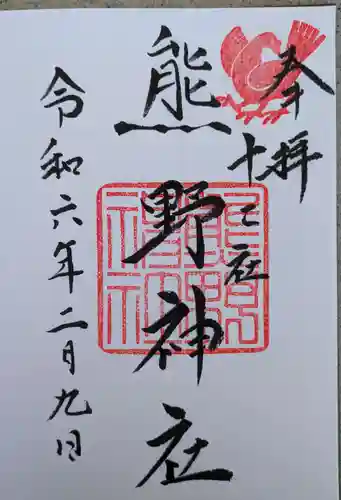 奉拝
十二社
熊野神社
令和六年二月九日
熊野神社